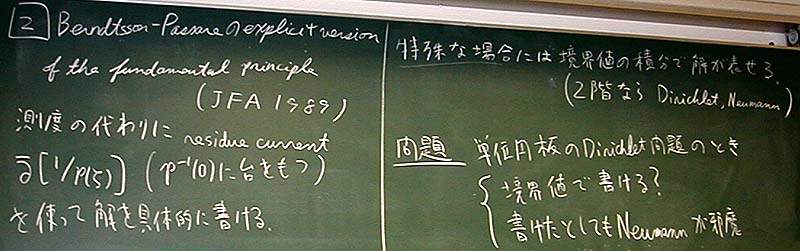 2 Berndtsson-Passare の explicit version
of the fundamental principle
(JFA 1989)
測度の代わりに residue current
∂̄[1/P(ζ)] (P⁻¹(0)に台をもつ)
を使って解を具体的に書ける.
特殊な場合には境界値の積分で解が表せる.
(2階なら Dirichlet, Neumann)
問題 単位円板のDirichlet問題のとき
境界値で書ける?
書けたとしてもNeumannが邪魔